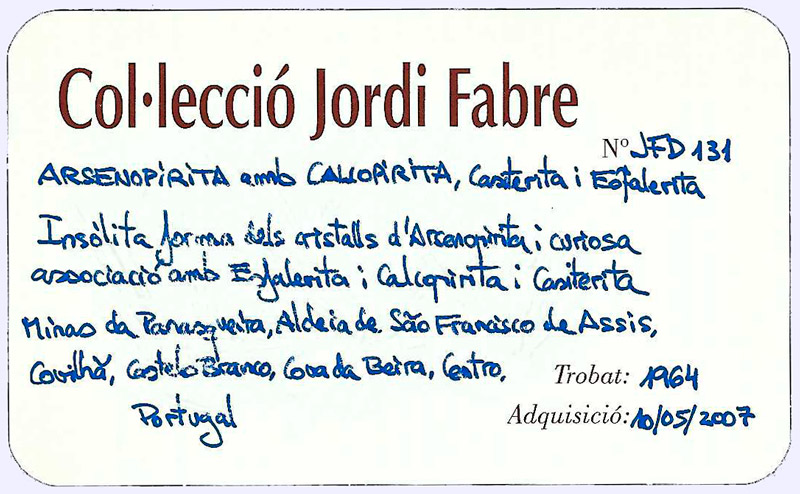 Col·lecció Jordi Fabre
Nº JFD 131
ARSENOPIRITA amb CALCOPIRITA, Casiterita i Esfalerita
Insòlita forma dels cristalls d'Arsenopirita i curiosa
associació amb Esfalerita i Calcopirita i Casiterita
Minas da Panasqueira, Aldeia de São Francisco de Assis,
Covilhã, Castelo Branco, Cova da Beira, Centro,
Trobat: 1964
Portugal
Adquisició: 10/05/2007